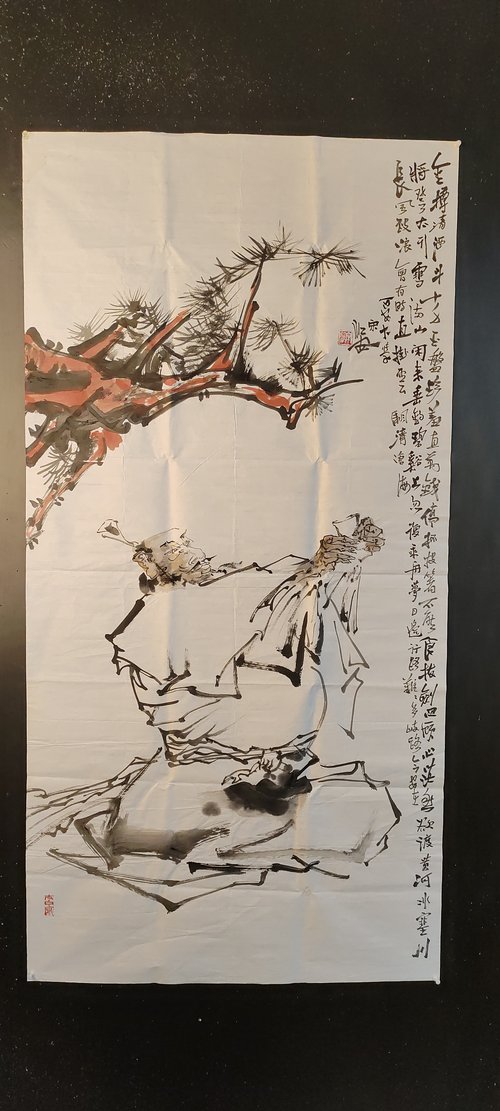 金樽清酒斗十千玉盤珍羞直萬錢停杯投箸不能食拔劍四顧心茫然欲渡黃河冰塞川
將登太行雪滿山閑來垂釣碧谿上忽復乘舟夢日邊行路難〻多岐路今安在
長風破浪會有時直掛雲帆濟滄海